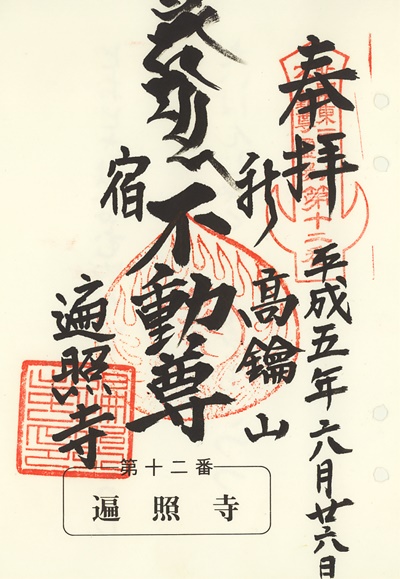 奉拝
平成五年六月廿六日
高鑰山
新宿
不動尊
遍照寺
第十二番
遍照寺